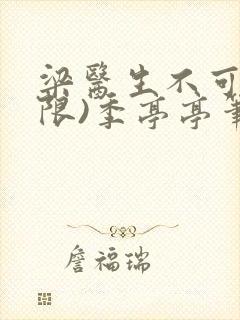 梁醫生不可
限)季亭亭筆
詹福瑞